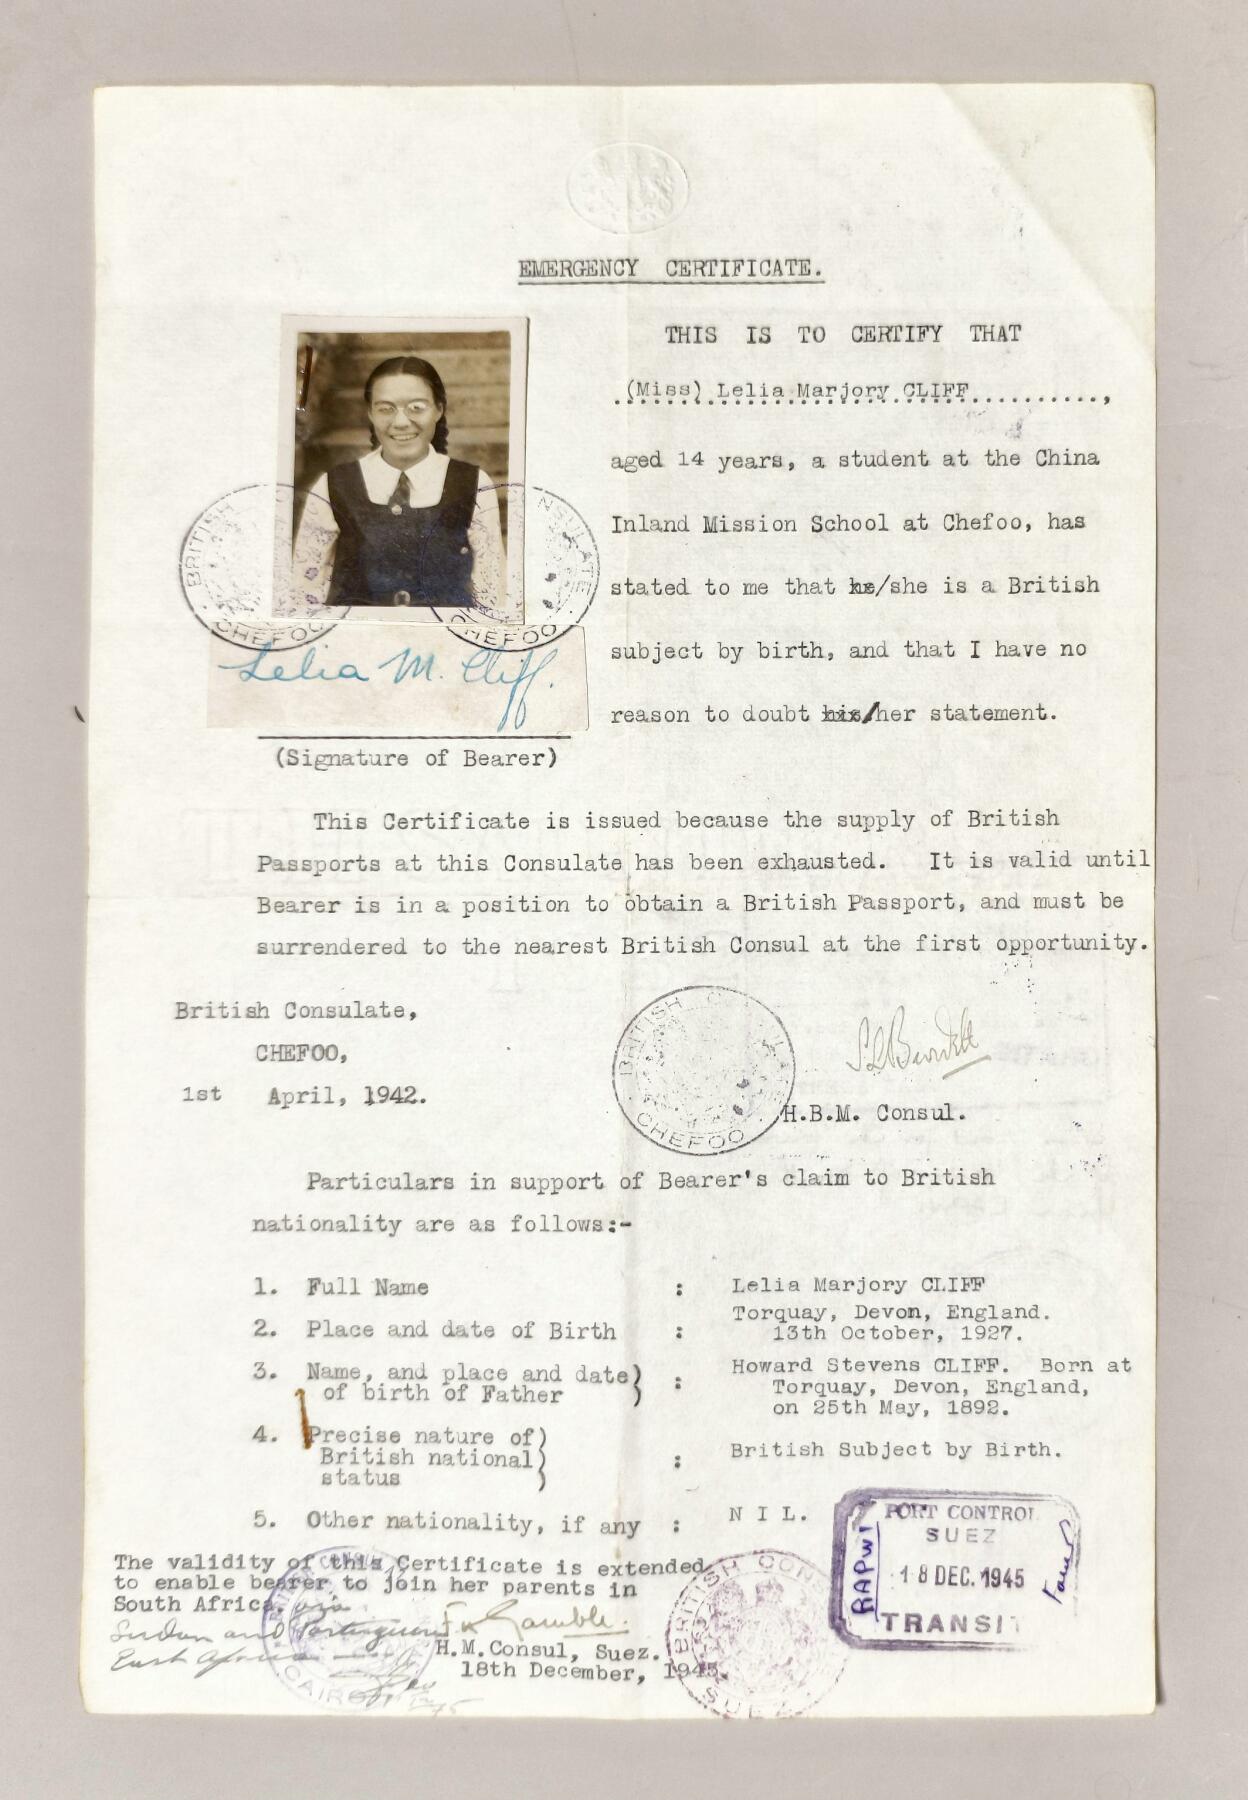 EMERGENCY CERTIFICATE.
THIS IS TO CERTIFY THAT
(Miss) Lelia Marjory CLIFF,
aged 14 years, a student at the China
Inland Mission School at Chefoo, has
stated to me that he/she is a British
subject by birth, and that I have no
reason to doubt his/her statement.
BRITISH CONSULATE CHEFOO
BRITISH CONSULATE CHEFOO
Lelia M. Cliff.
(Signature of Bearer)
This Certificate is issued because the supply of British
Passports at this Consulate has been exhausted. It is valid until
Bearer is in a position to obtain a British Passport, and must be
surrendered to the nearest British Consul at the first opportunity.
British Consulate,
CHEFOO,
1st April, 1942.
BRITISH CONSULATE CHEFOO
H.B.M. Consul.
Particulars in support of Bearer's claim to British
nationality are as follows:-
1. Full Name : Lelia Marjory CLIFF
2. Place and date of Birth : Torquay, Devon, England.
13th October, 1927.
3. Name, and place and date) : Howard Stevens CLIFF. Born at
of birth of Father ) Torquay, Devon, England,
on 25th May, 1892.
4. Precise nature of)
British national) : British Subject by Birth.
status )
5. Other nationality, if any : N I L.
PORT CONTROL
SUEZ
18 DEC. 1945
TRANSIT
RAPWI
The validity of this Certificate is extended
to enable bearer to join her parents in
South Africa via
Sudan and Portuguese
East Africa
F Gamble.
H.M.Consul, Suez.
18th December, 1945.
BRITISH CONSULATE SUEZ
CAIRO